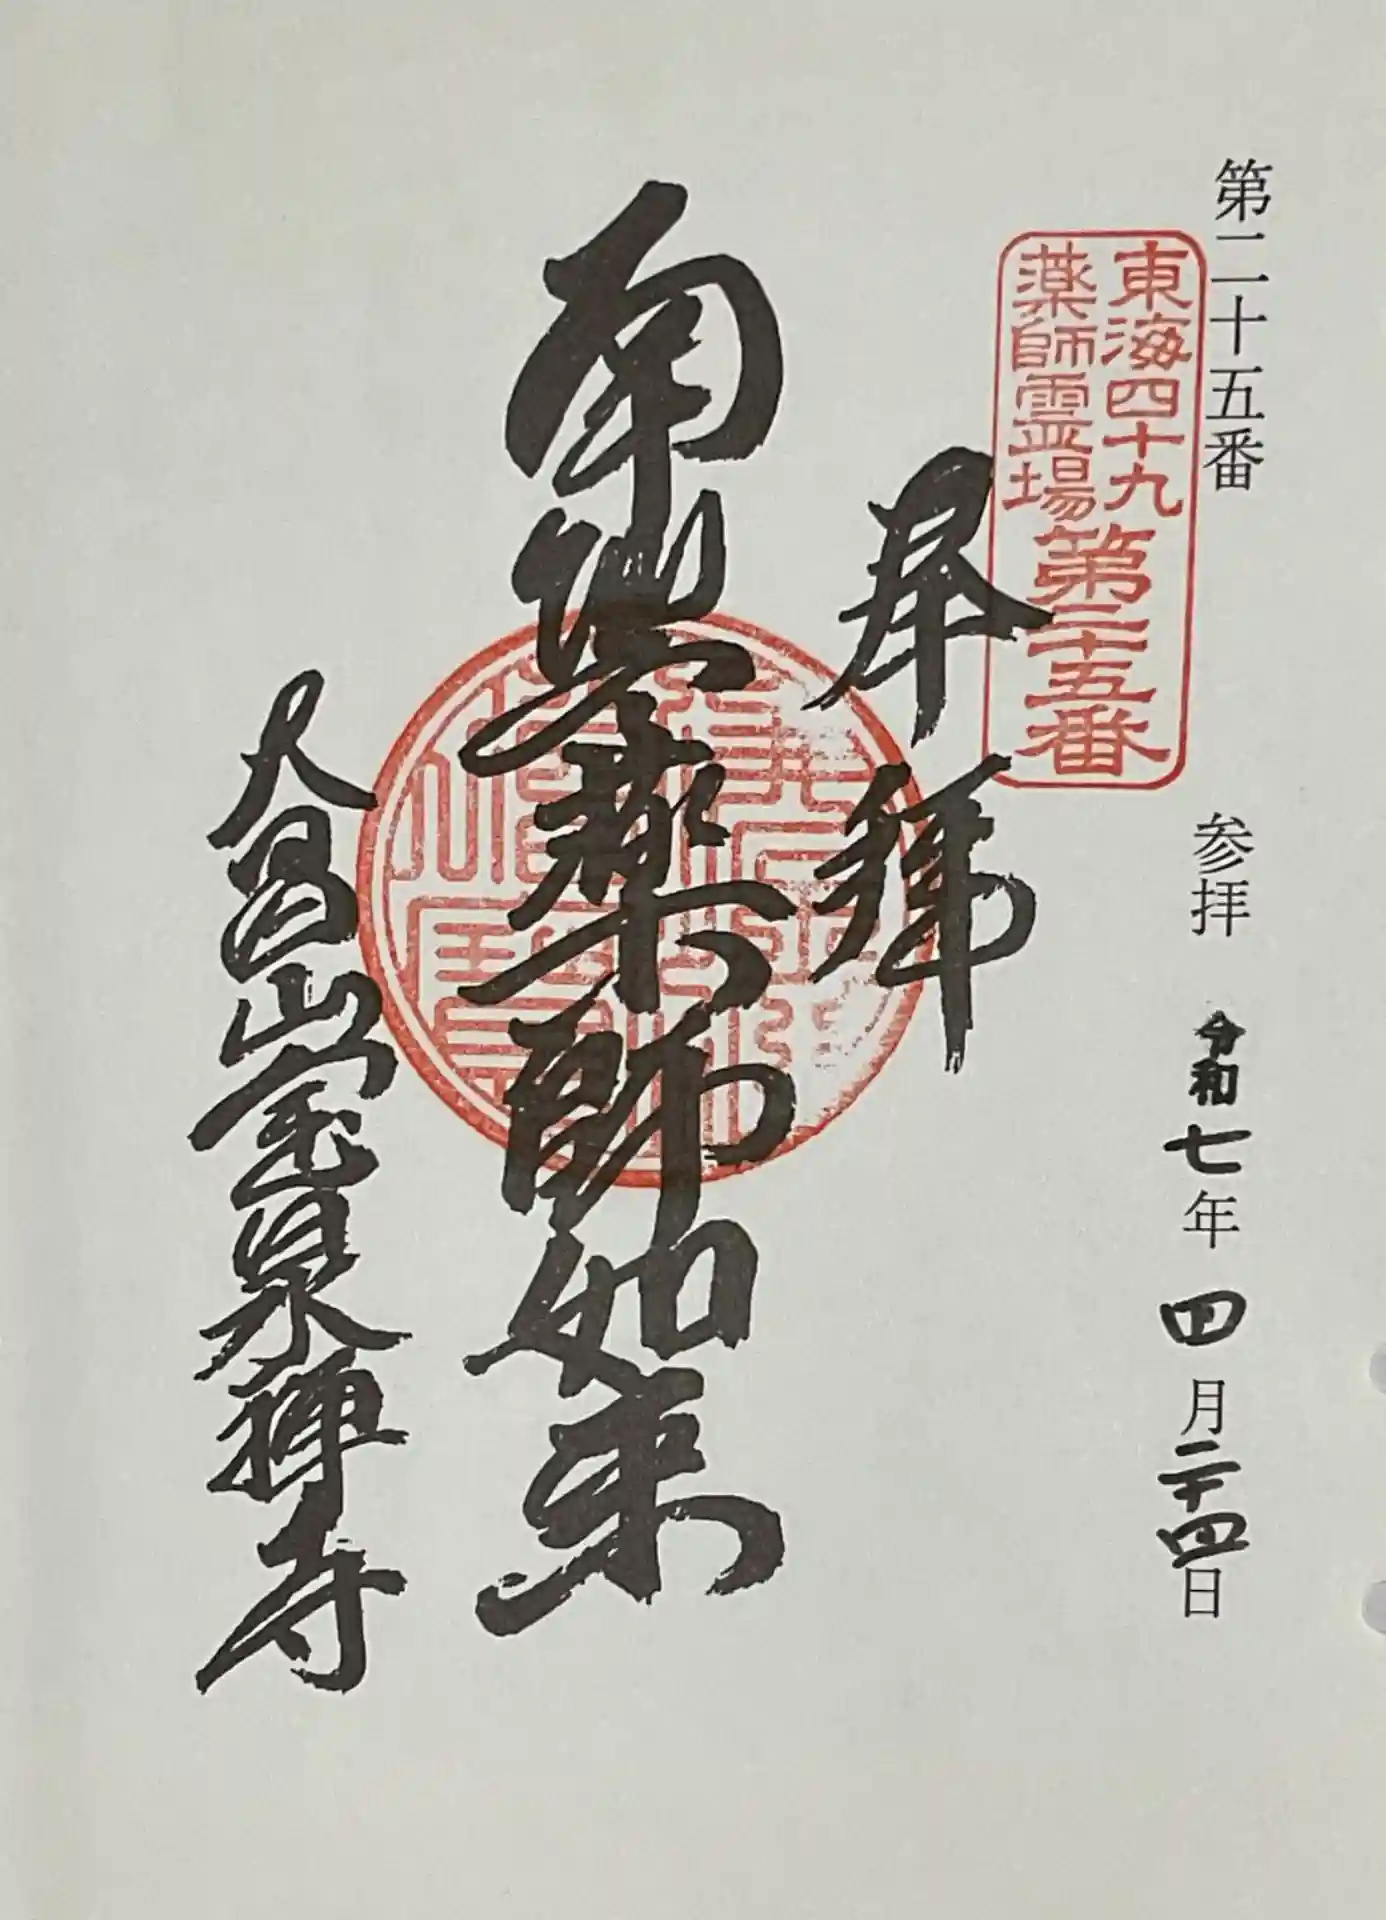 第二十五番
参拝 令和七年四月二十四日
東海四十九
薬師霊場
第二十五番
奉拝
南無薬師如来
大昌山宝泉禅寺